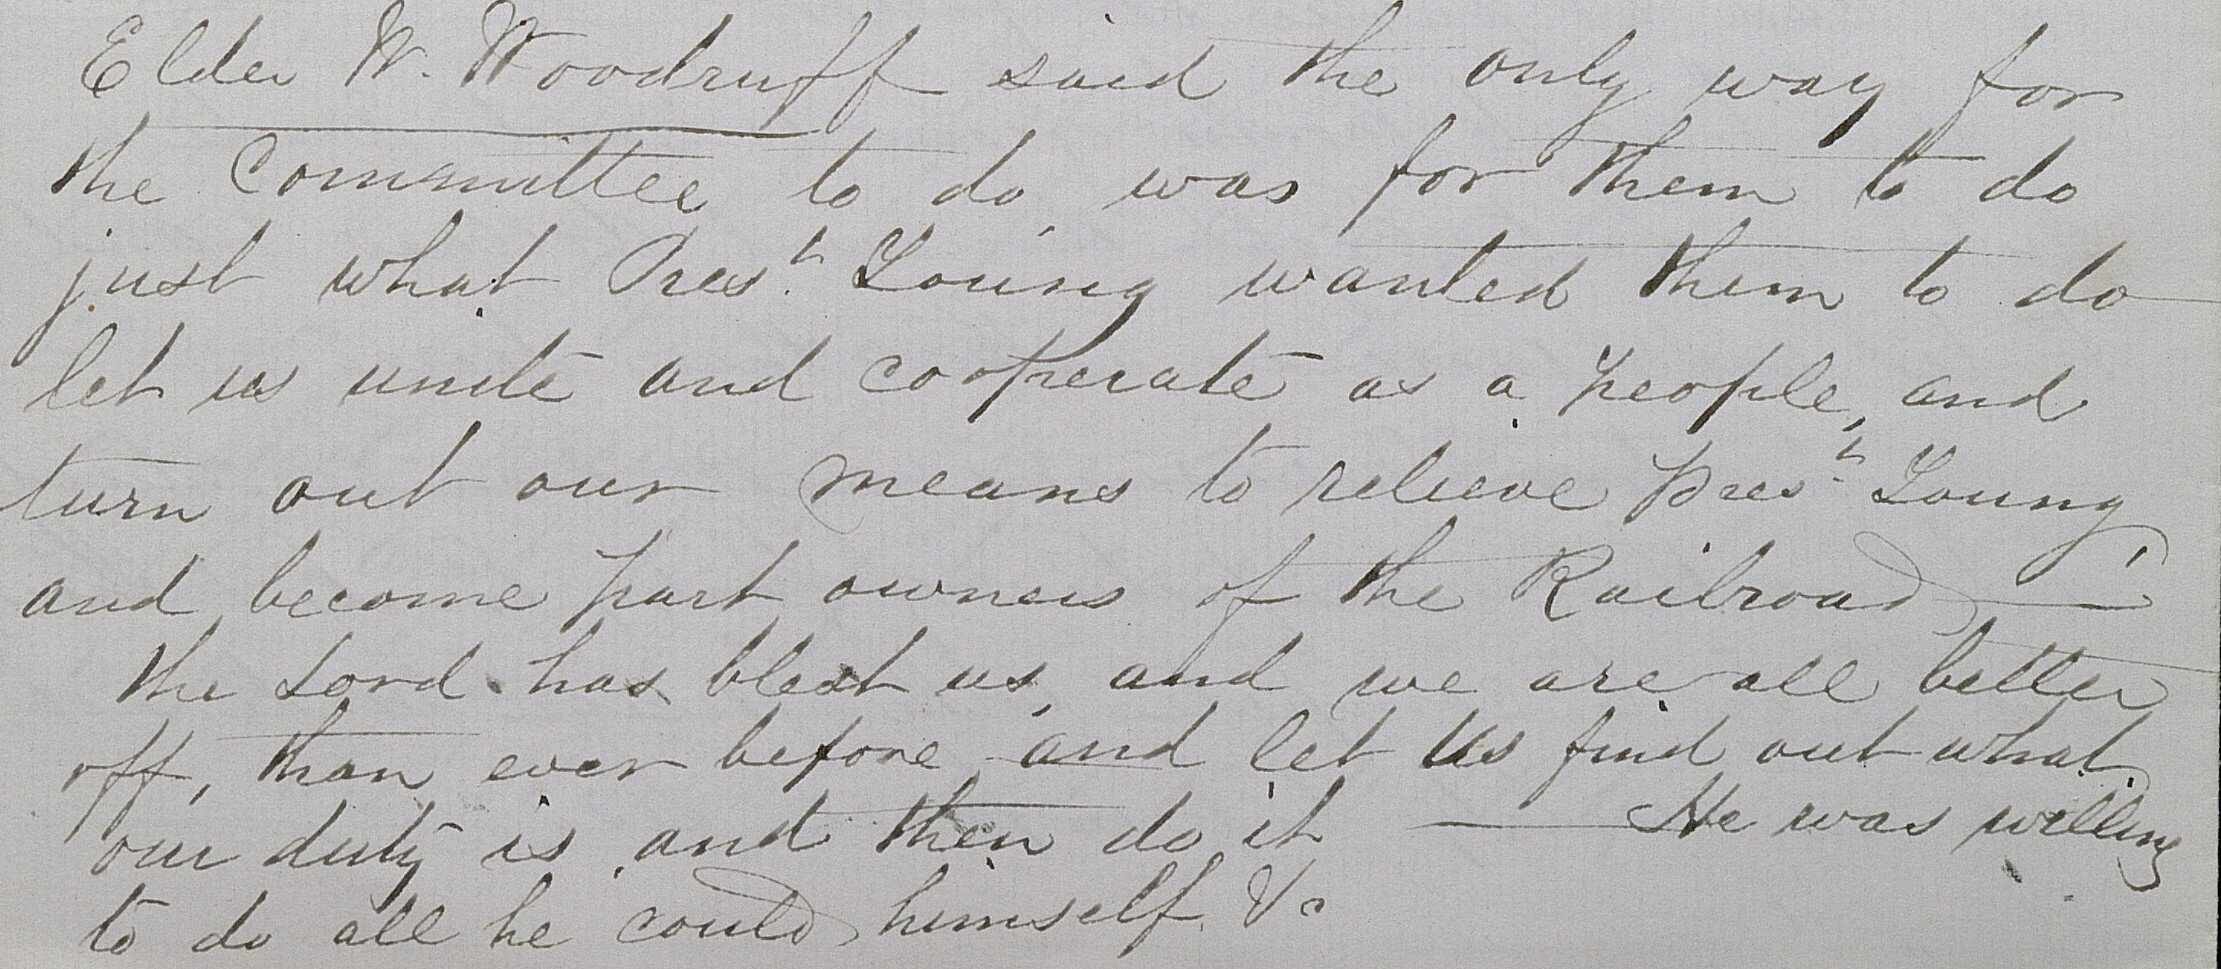 Elder W. Woodruff said the only way for
the Committee to do, was for them to do
just what Prest. Young wanted them to do
let us unite and cooperate as a people, and
turn out our means to relieve Prest. Young
and become part owners of the Railroad —
the Lord has blest us, and we are all better
off, than ever before and let us find out what
our duty is and then do it — He was willing
to do all he could himself &c